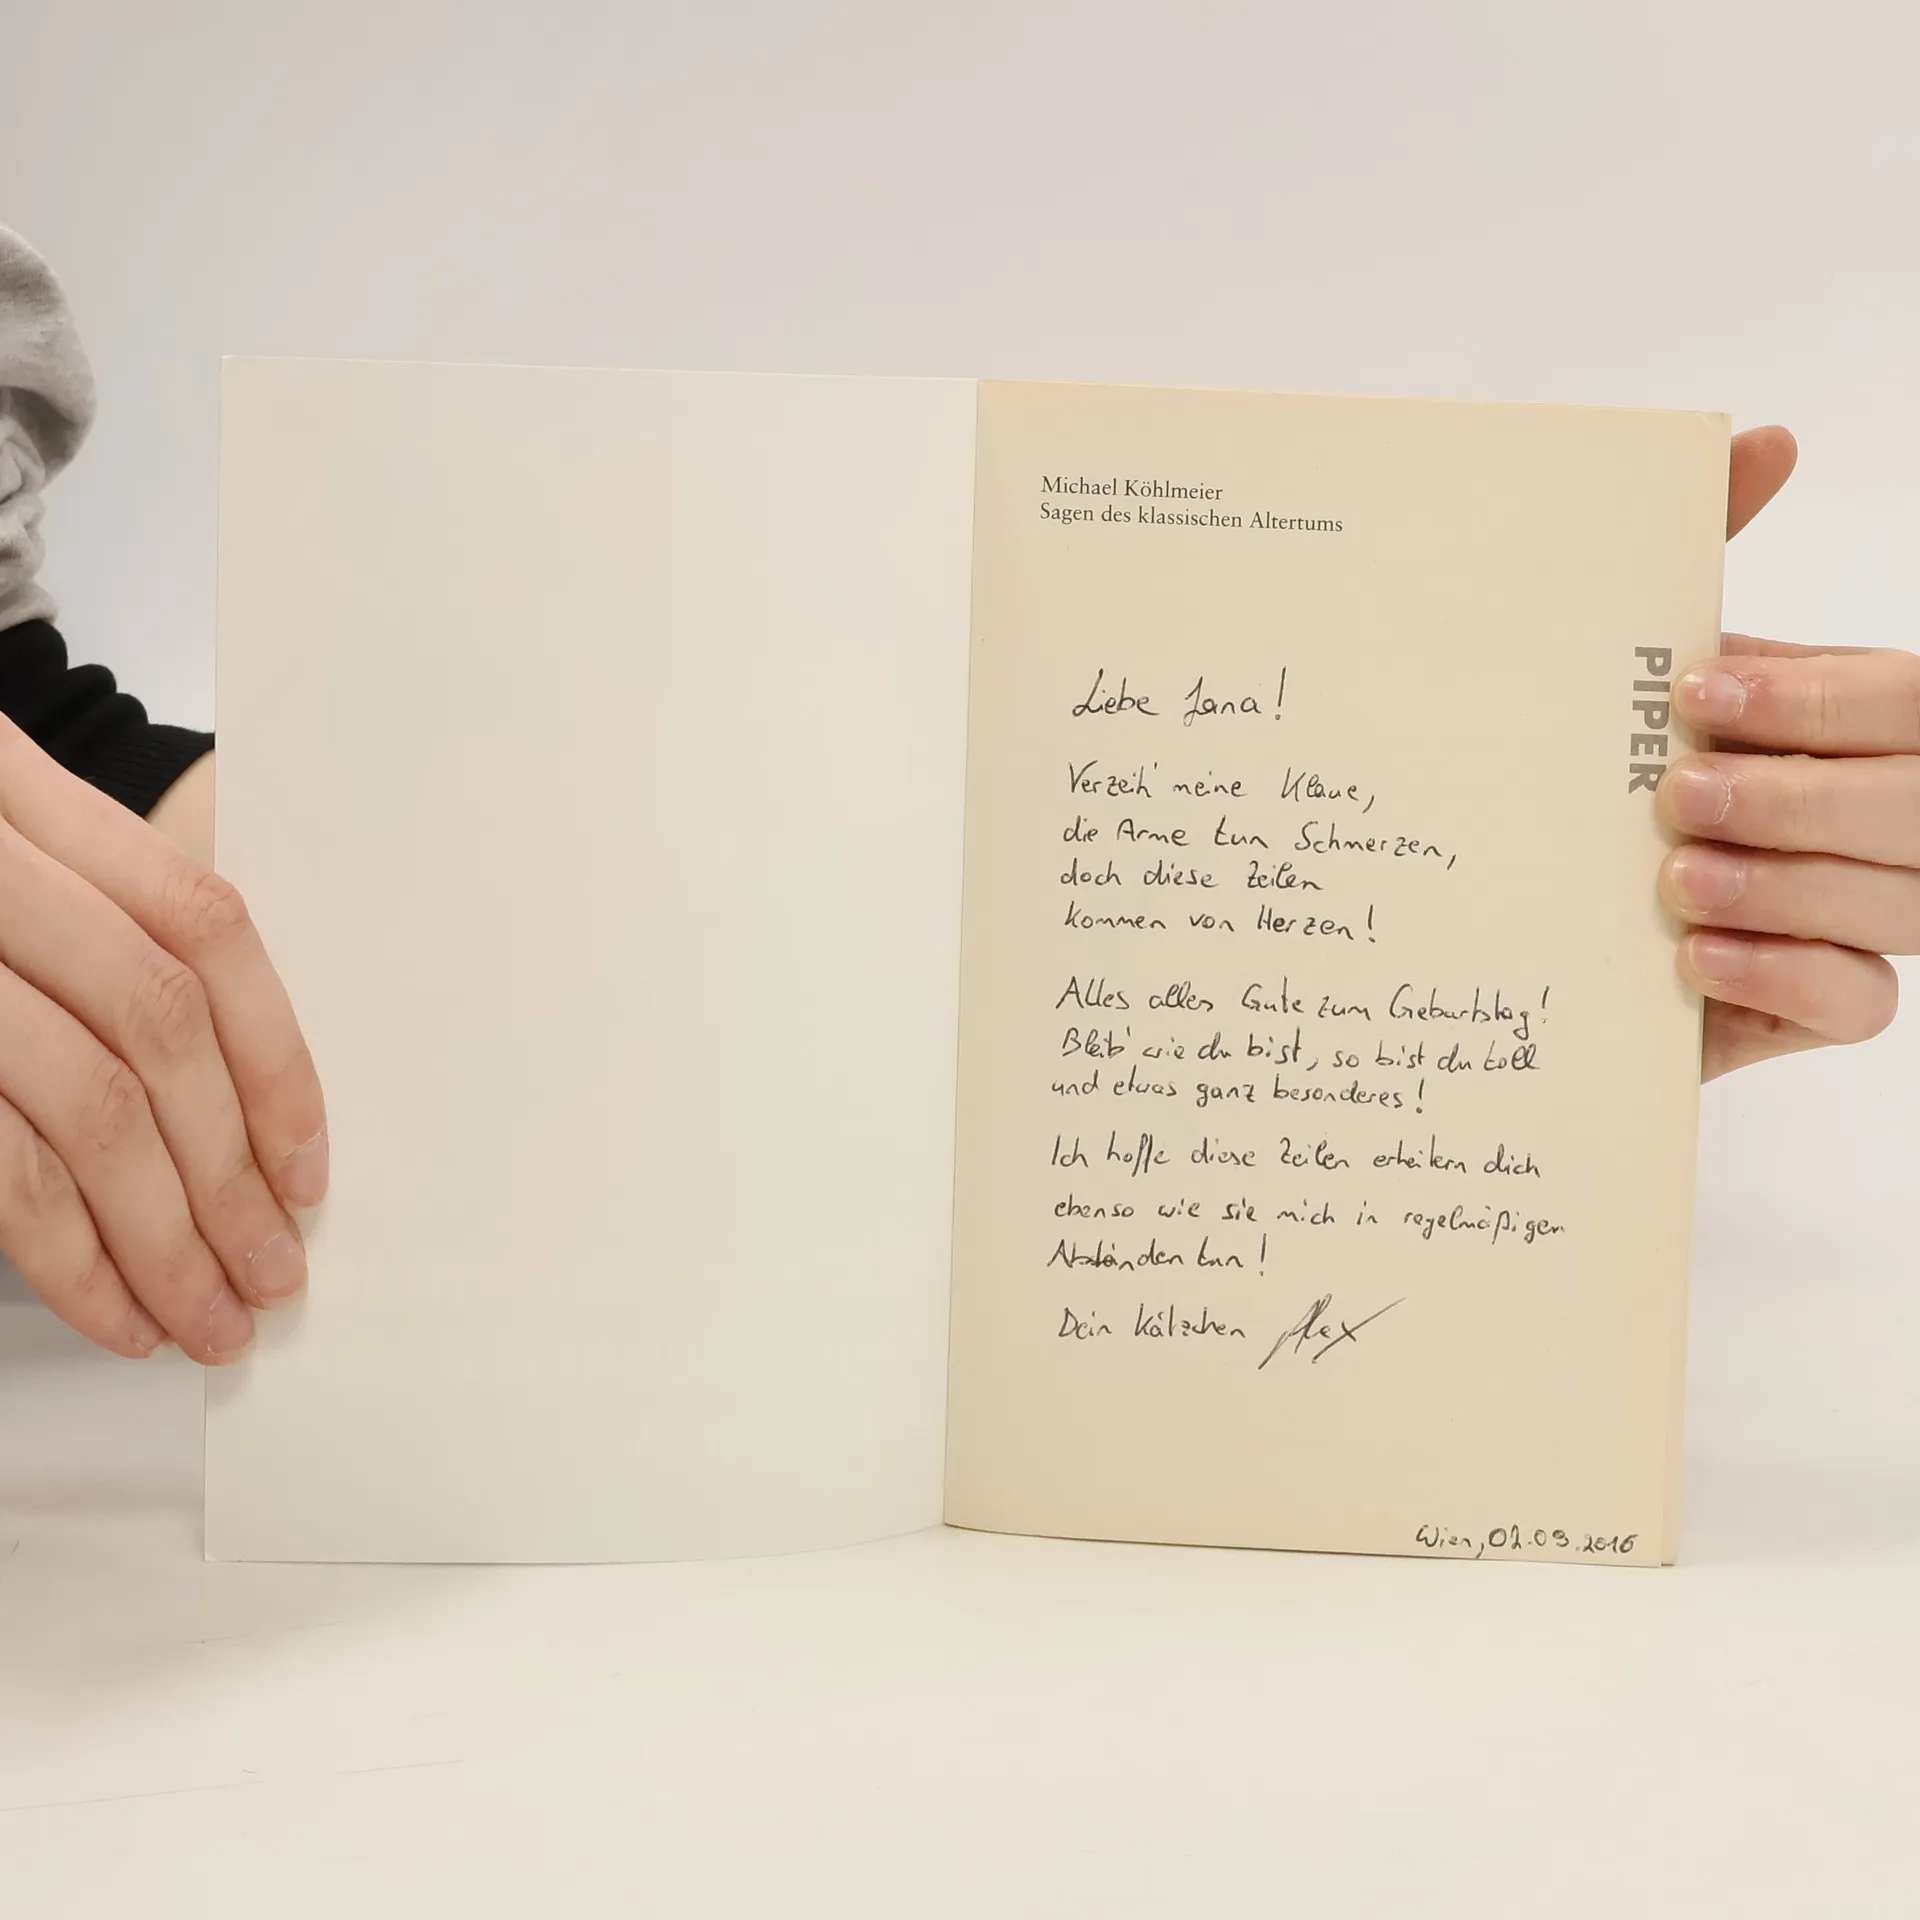 Michael Köhlmeier
Sagen des klassischen Altertums
PIPER
Liebe Jana!
Verzeih' meine Klaue,
die Arme tun Schmerzen,
doch diese Zeilen
kommen von Herzen!
Alles alles Gute zum Geburtstag!
Bleib' wie du bist, so bist du toll
und etwas ganz besonderes!
Ich hoffe diese Zeilen erheitern dich
ebenso wie sie mich in regelmäßigen
Abständen tun!
Dein Kätzchen Alex
Wien, 02.09.2016